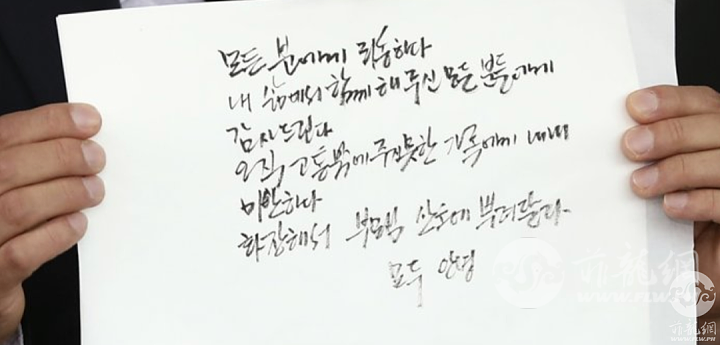 모든 분에게 죄송하다
내 삶에서 함께 해 주신 모든 분들에게
감사드린다
오직 고통밖에 주지 못한 가족에게 내내
미안하다
화장해서 부모님 산소에 뿌려달라
모두 안녕
菲龍網
WWW.FLW.PH
菲龍網
WWW.FLW.PH